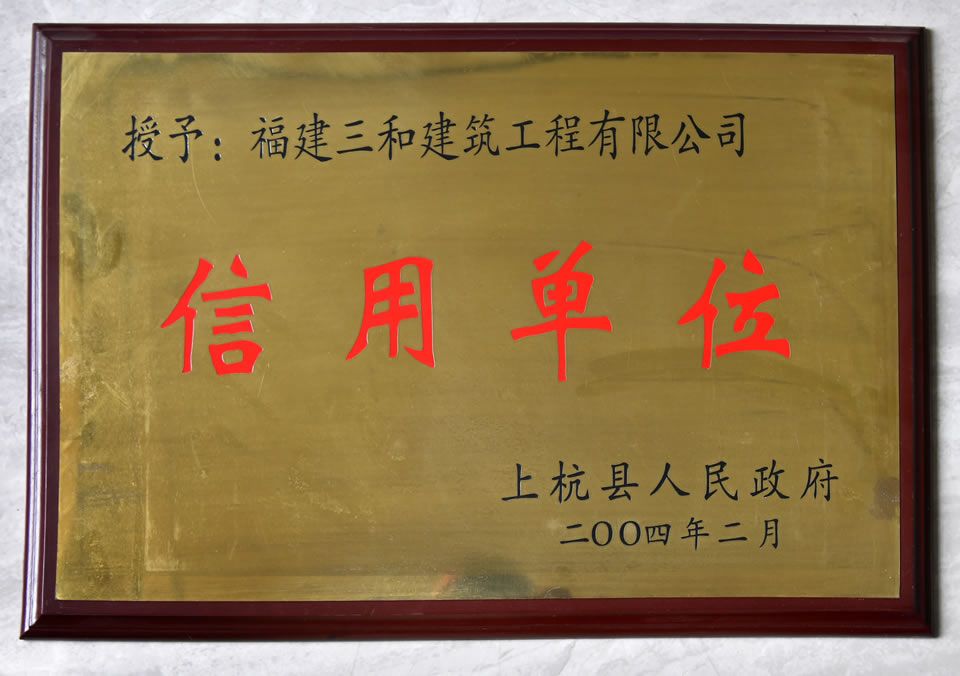 授予：福建三和建筑工程有限公司
信用单位
上杭县人民政府
二〇〇四年二月